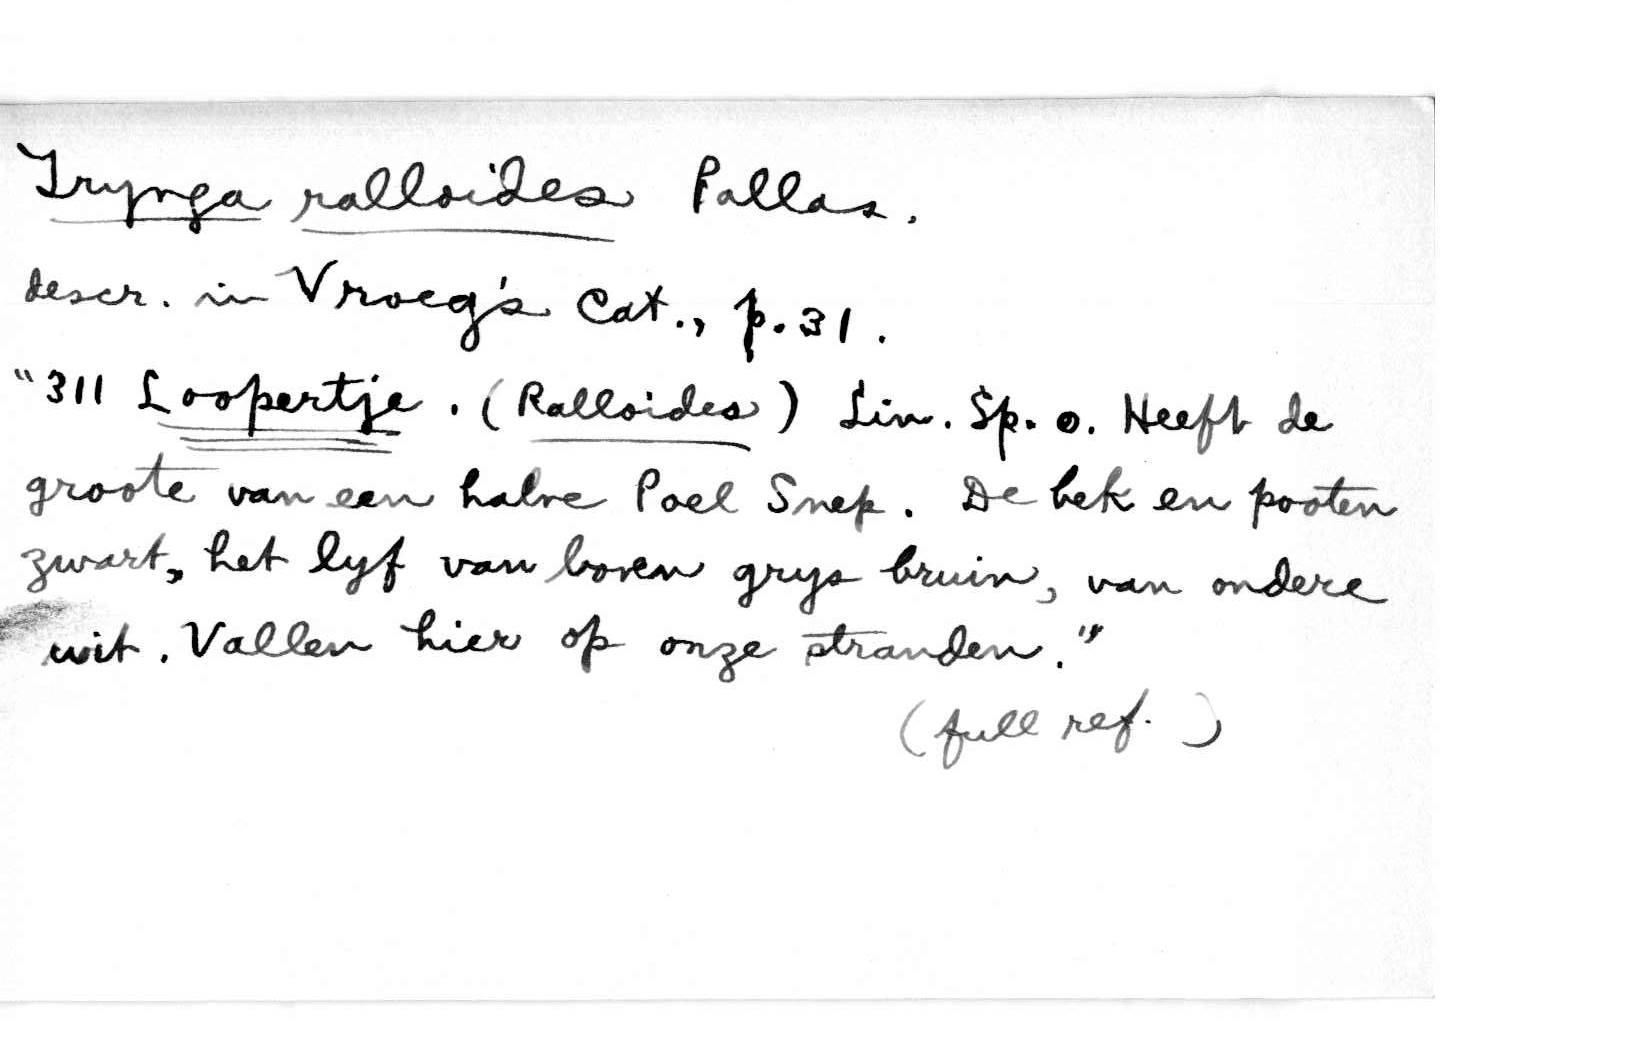 Trynga ralloides Pallas.
descr. in Vroeg's Cat., p. 31.
"311 Loopertje. (Ralloides) Lin. Sp. o. Heeft de
groote van een halve Poel Snep. De bek en pooten
zwart, het lyf van boven grys bruin, van ondere
wit. Vallen hier op onze stranden."
(full ref.)